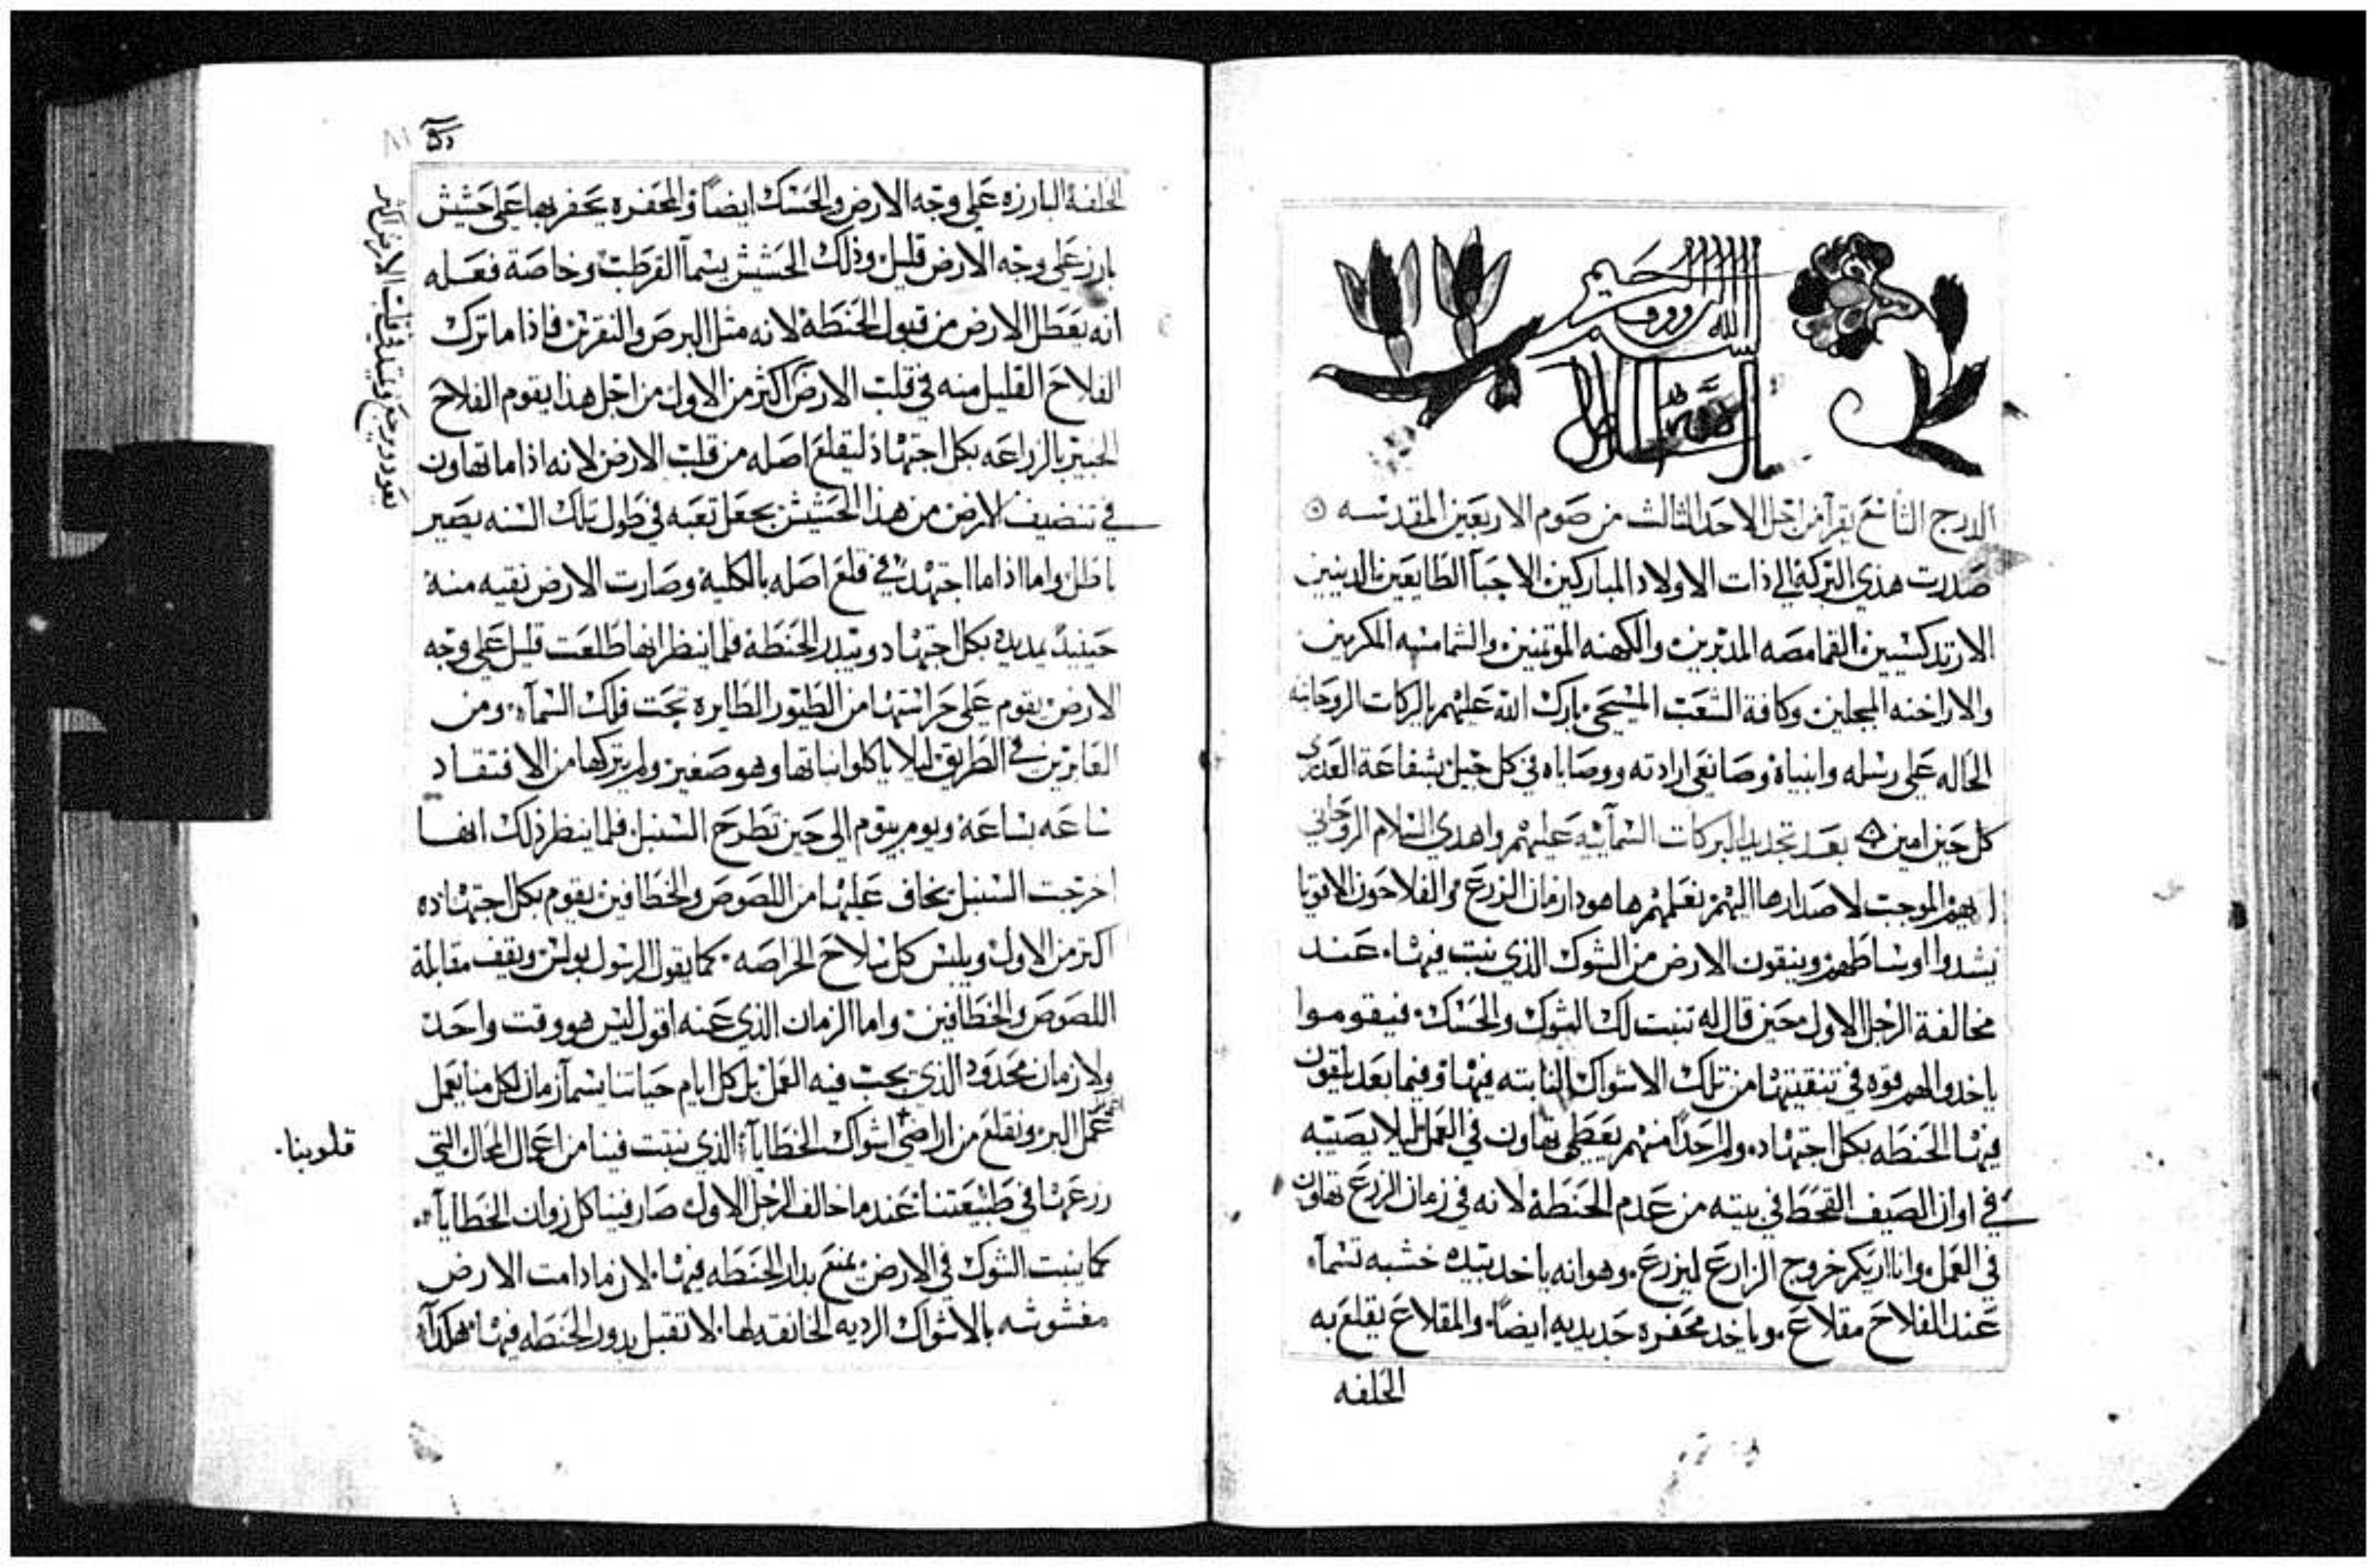 الله الرووف الرحيم
الدرج التاسع يقرا من اجل الاحد الثالث من صوم الاربعين المقدسه
صدرت هذي البركة الي ذات الاولاد المباركين الاحبآ الطايعين الدينين
الارتدكسيين القمامصه المدبرين والكهنه الموتمنين والشمامسه المكرمين
والاراخنه المبجلين وكافة الشعب المسيحي بارك الله عليهم بالبركات الروحانيه
الحاله علي رسله وانبياه وصانعي ارادته ووصاياه في كل جيل بشفاعة العدري
كل حين امين بعد تجديد البركات السمآييه عليهم واهدي السلام الروحاني
اليهم الموجب لاصدارها اليهم نعلمهم هاهودا زمان الزرع والفلاحون الاقويا
يشدوا اوساطهم وينقون الارض من الشوك الذي نبت فيها عند
مخالفة الرجل الاول حين قال له تنبت لك الشوك والحسك فيقوموا
ياخدوا لهم قوه في تنقيتها من تلك الاشواك النابته فيها وفيما بعد يلقون
فيها الحنطه بكل اجتهاده ولم احداً منهم يعطي تهاون في العمل ليلا يصيبه
في اوان الصيف القحط في بيته من عدم الحنطة لانه في زمان الزرع تهاون
في العمل وانا اريكم خروج الزارع ليزرع وهو انه ياخد بيده خشبه تسمآ
عند الفلاح مقلاع وياخد محفره حديديه ايضاً والمقلاع يقلع به
الحلفه
الحلفة البارزه علي وجه الارض والحسك ايضاً والمحفره يحفر بها علي حشيش
بارز علي وجه الارض قليل وذلك الحشيش يسمآ القرطب وخاصة فعله
انه يعطل الارض من قبول الحنطة لانه مثل البرص والنقرين فاذا ما ترك
الفلاح القليل منه في قلب الارض اكثر من الاول من اجل هذا يقوم الفلاح
الخبير بالزراعه بكل اجتهاد ليقلع اصله من قلب الارض لانه اذا ما تهاون
في تنضيف الارض من هذا الحشيش يجعل تعبه في طول تلك السنه يصير
باطل واما اذا ما اجتهد في قلع اصله بالكلية وصارت الارض نقيه منة
حينيدً يمد يده بكل اجتهاد ويبدر الحنطة فلما ينظر انها طلعت قليل علي وجه
الارض يقوم علي حراستها من الطيور الطايره تحت فلك السمآ ومن
العابرين في الطريق ليلا ياكلوا نباتها وهو صغير ولم يتركها من الافتقاد
ساعه بساعة ويوم بيوم الى حين تطرح السنبل فلما ينظر ذلك انها
اخرجت السنبل يخاف عليها من اللصوص والخطافين يقوم بكل اجتهاده
اكتر من الاول ويلبس كل سلاح الحراصه كما يقول الرسول بولس ويقف مقابلة
اللصوص والخطافين واما الزمان الذي عنه اقول ليس هو وقت واحد
ولا زمان محدود الذي يجب فيه العمل بل كل ايام حياتنا يسمآ زمان لكل منا يعمل
عمل البر ونقلع من اراضي اشواك الخطايآ الذي نبتت فينا من اعمال المحال التي
زرعها في طبيعتنا عندما خالف الرجل الاول صار فينا كل زوان الخطايآ
كما ينبت الشوك في الارض يمنع بدار الحنطه فيها لان ما دامت الارض
مغشوشه بالاشواك الرديه الخانقه لها لا تقبل بدور الحنطه فيها هكذا
يعود ويرجع
قلب الارض اكثر
قلوبنا